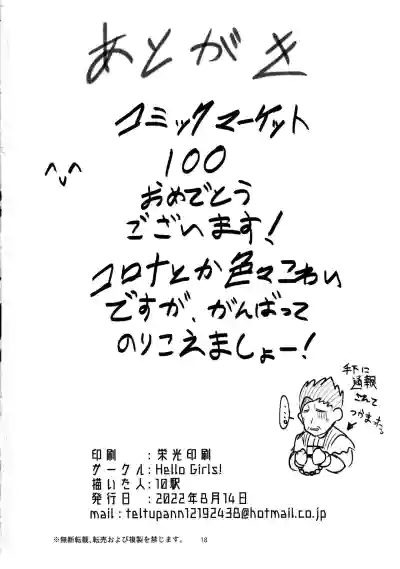 あとがき
コミックマーケット
100
おめでとう
ございます!
コロナとか色々こわい
ですが、がんばって
のりこえましょー!
手下に
通報
されて
つかまった。
印刷 : 栄光印刷
サークル : Hello Girls!
描いた人 : 10駅
発行日 : 2022年8月14日
mail : teltupann12192438@hotmail.co.jp
※無断転載、転売および複製を禁じます。
18